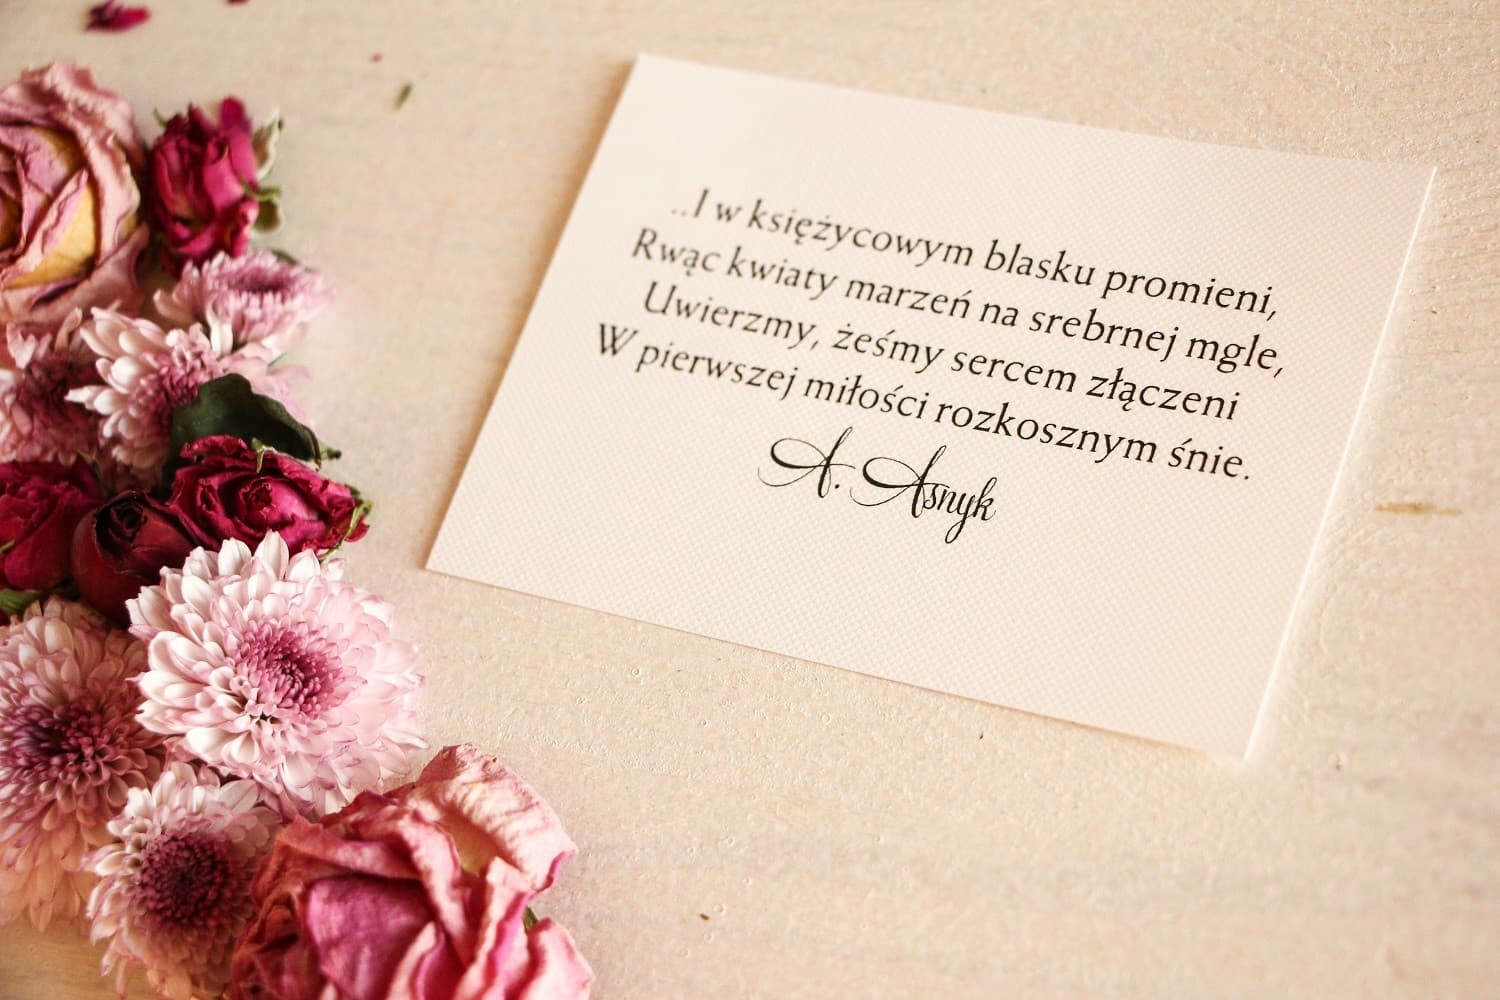 ..I w księżycowym blasku promieni,
Rwąc kwiaty marzeń na srebrnej mgle,
Uwierzmy, żeśmy sercem złączeni
W pierwszej miłości rozkosznym śnie.
A. Asnyk